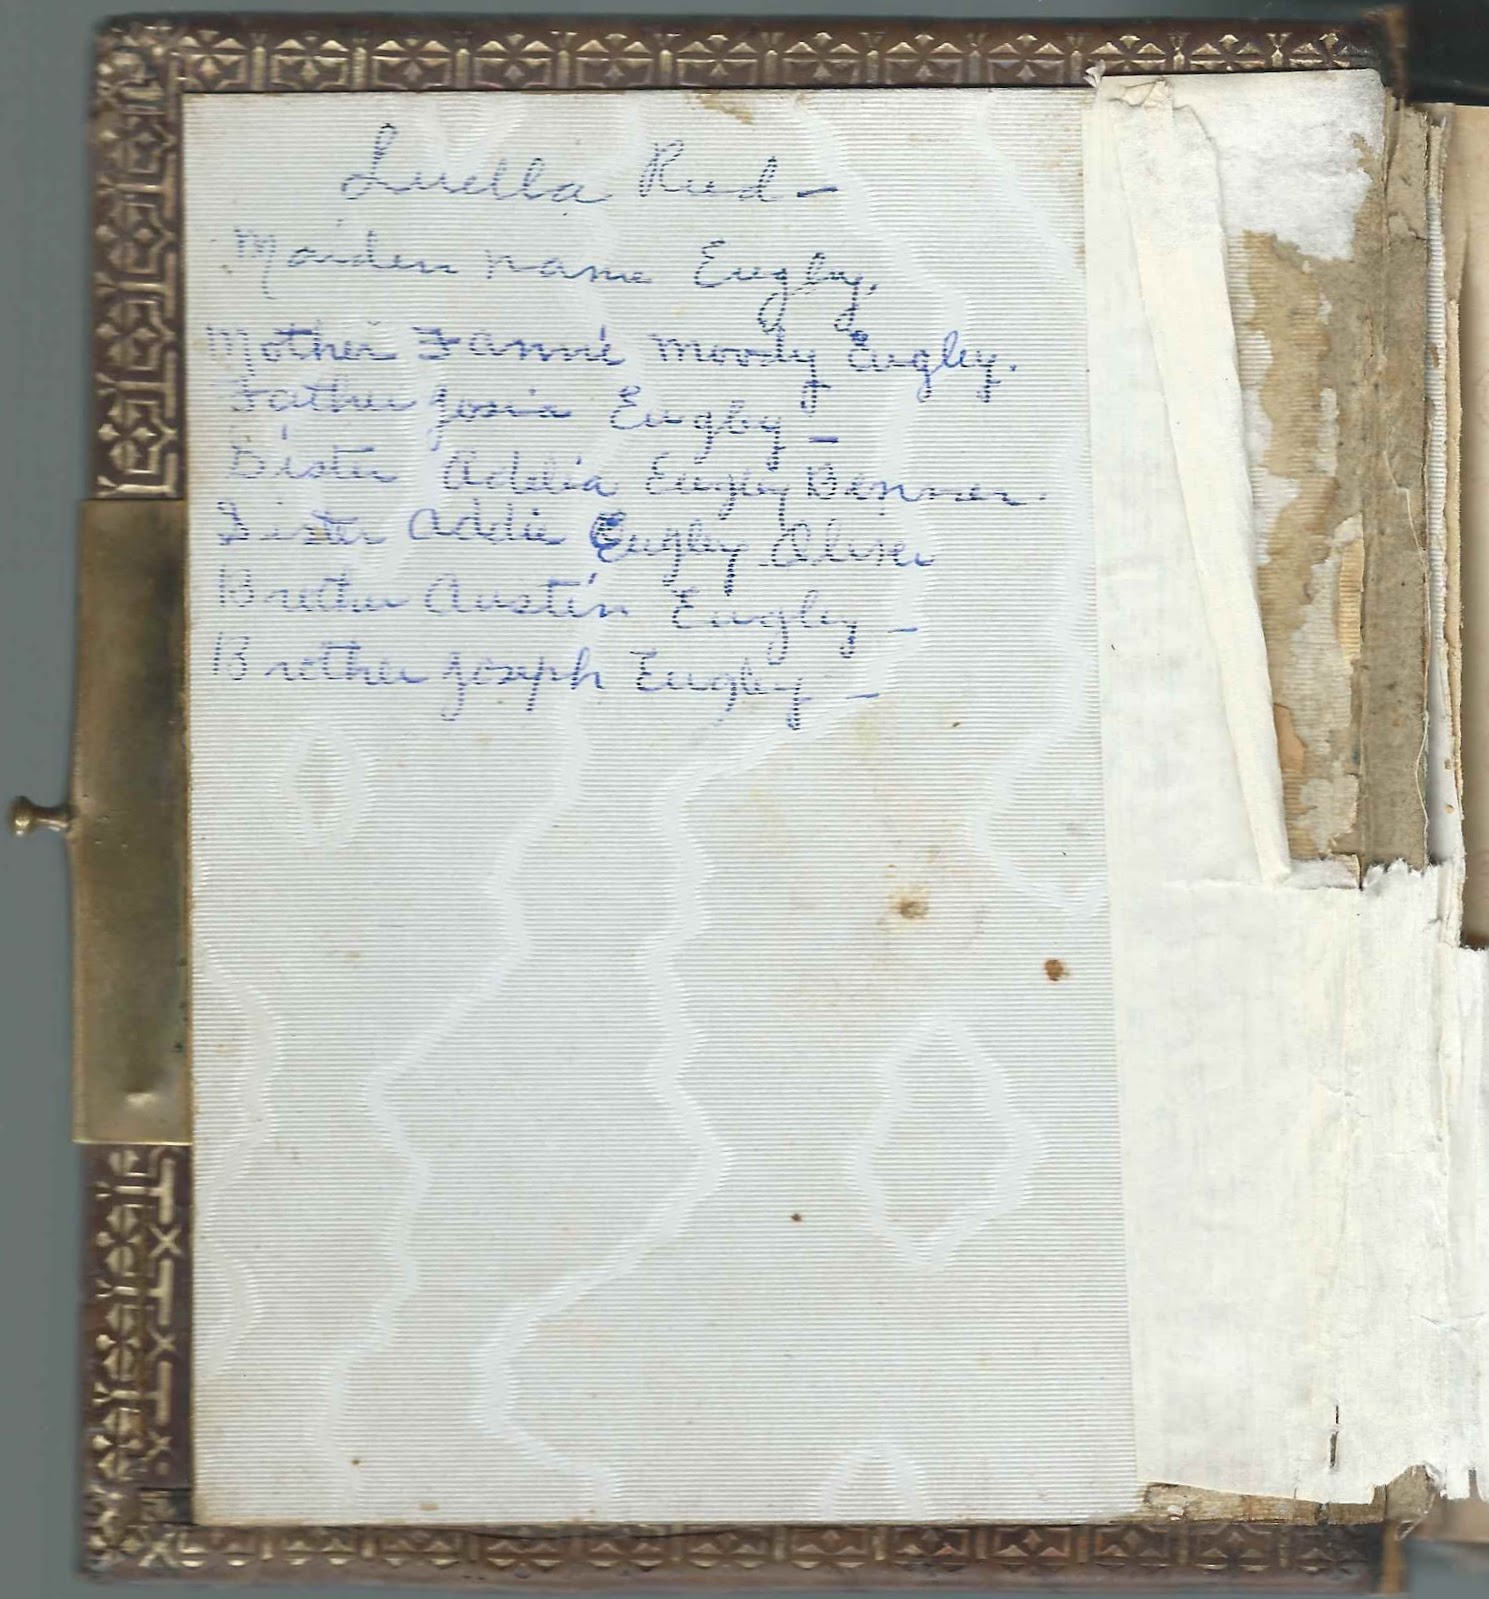 Luella Reed –
Maiden name Eugley.
Mother Fannie Moody Eugley.
Father Josia Eugley –
Sister Addia Eugley Benner.
Sister Addie Eugley Oliver
Brother Austin Eugley –
Brother Joseph Eugley –